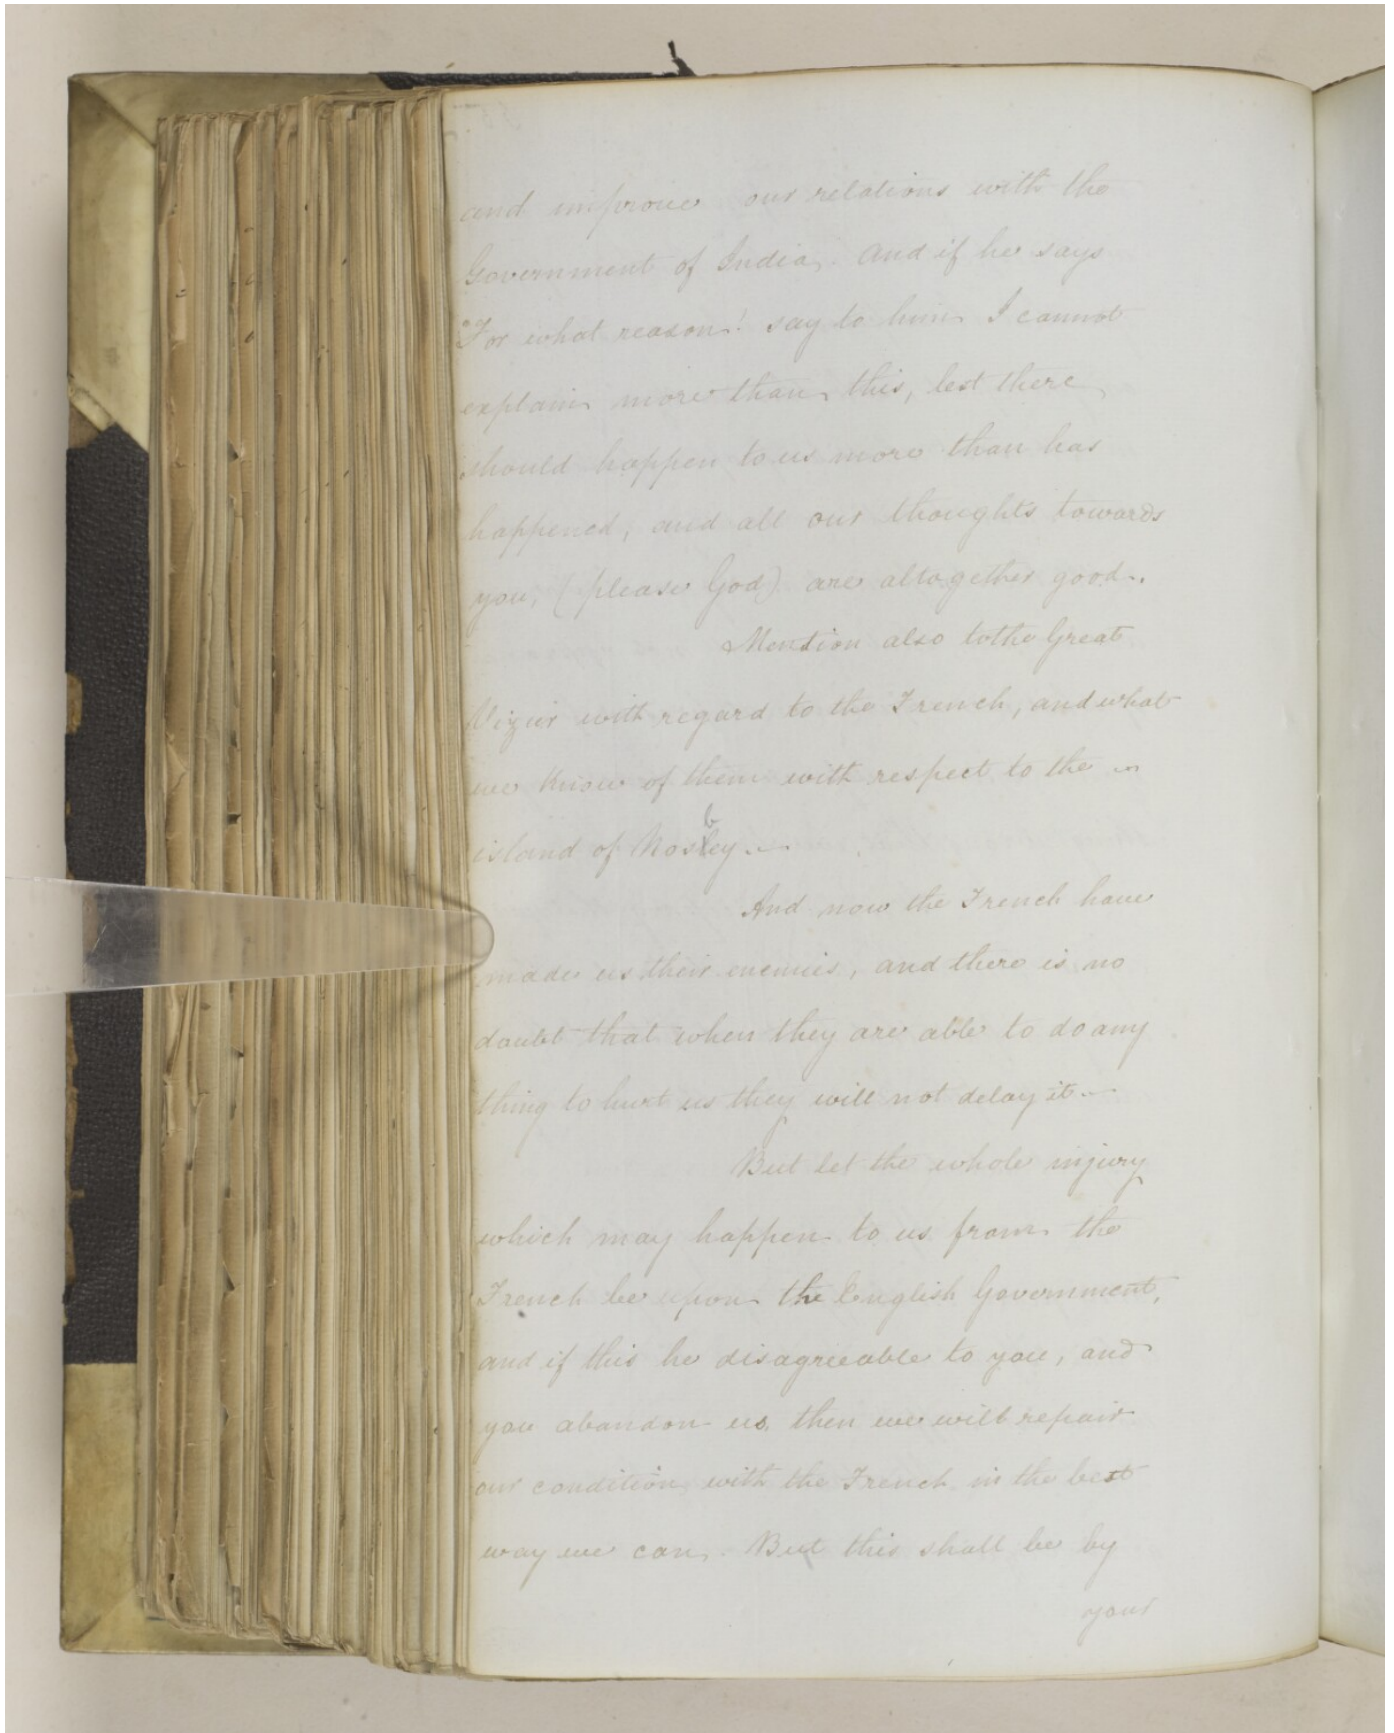 and improve our relations with the
Government of India. And if he says
"For what reason! say to him I cannot
explain more than this, lest there
should happen to us more than has
happened, and all our thoughts towards
you, (please God) are altogether good.
Mention also to the Great
Vizier with regard to the French, and what
we know of them with respect to the
island of Nosbey.
And now the French have
made us their enemies, and there is no
doubt that when they are able to do any
thing to hurt us they will not delay it.
But let the whole injury
which may happen to us from the
French be upon the English Government,
and if this be disagreeable to you, and
you abandon us, then we will repair
our condition with the French in the best
way we can. But this shall be by
your